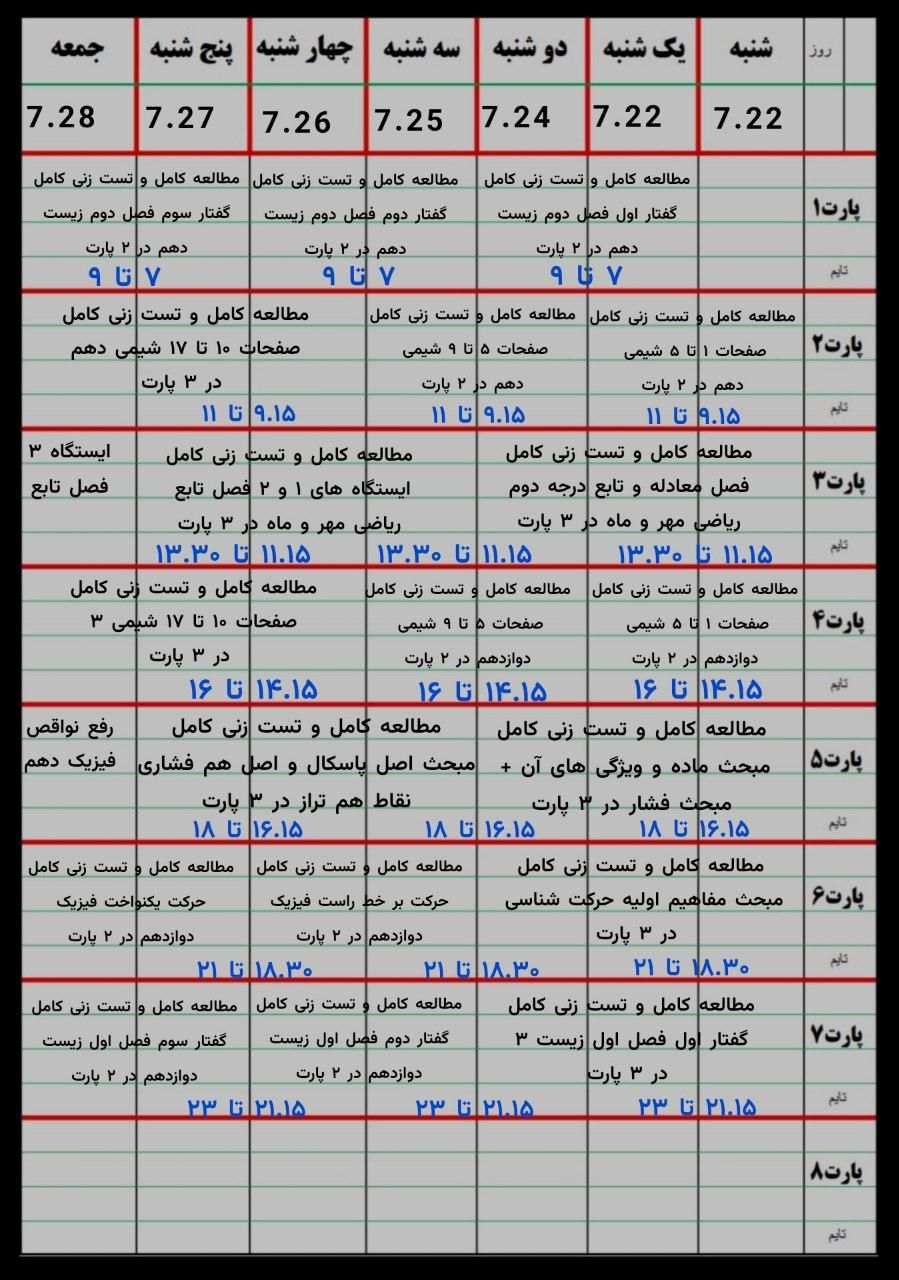 روز شنبه یک شنبه دو شنبه سه شنبه چهار شنبه پنج شنبه جمعه
7.22 7.22 7.24 7.25 7.26 7.27 7.28
پارت۱
مطالعه کامل و تست زنی کامل
گفتار اول فصل دوم زیست
دهم در ۲ پارت
۷ تا ۹
مطالعه کامل و تست زنی کامل
گفتار دوم فصل دوم زیست
دهم در ۲ پارت
۷ تا ۹
مطالعه کامل و تست زنی کامل
گفتار سوم فصل دوم زیست
دهم در ۲ پارت
۷ تا ۹
تایم
پارت۲
مطالعه کامل و تست زنی کامل
صفحات ۱ تا ۵ شیمی
دهم در ۲ پارت
۹.۱۵ تا ۱۱
مطالعه کامل و تست زنی کامل
صفحات ۵ تا ۹ شیمی
دهم در ۲ پارت
۹.۱۵ تا ۱۱
مطالعه کامل و تست زنی کامل
صفحات ۱۰ تا ۱۷ شیمی دهم
در ۳ پارت
۹.۱۵ تا ۱۱
تایم
پارت۳
مطالعه کامل و تست زنی کامل
فصل معادله و تابع درجه دوم
ریاضی مهر و ماه در ۳ پارت
۱۱.۱۵ تا ۱۳.۳۰
مطالعه کامل و تست زنی کامل
ایستگاه های ۱ و ۲ فصل تابع
ریاضی مهر و ماه در ۳ پارت
۱۱.۱۵ تا ۱۳.۳۰
۱۱.۱۵ تا ۱۳.۳۰
ایستگاه ۳
فصل تابع
تایم
پارت۴
مطالعه کامل و تست زنی کامل
صفحات ۱ تا ۵ شیمی
دوازدهم در ۲ پارت
۱۴.۱۵ تا ۱۶
مطالعه کامل و تست زنی کامل
صفحات ۵ تا ۹ شیمی
دوازدهم در ۲ پارت
۱۴.۱۵ تا ۱۶
مطالعه کامل و تست زنی کامل
صفحات ۱۰ تا ۱۷ شیمی ۳
در ۳ پارت
۱۴.۱۵ تا ۱۶
تایم
پارت۵
مطالعه کامل و تست زنی کامل
مبحث ماده و ویژگی های آن +
مبحث فشار در ۳ پارت
۱۶.۱۵ تا ۱۸
مطالعه کامل و تست زنی کامل
مبحث اصل پاسکال و اصل هم فشاری
نقاط هم تراز در ۳ پارت
۱۶.۱۵ تا ۱۸
۱۶.۱۵ تا ۱۸
رفع نواقص
فیزیک دهم
تایم
پارت۶
مطالعه کامل و تست زنی کامل
مبحث مفاهیم اولیه حرکت شناسی
در ۳ پارت
۱۸.۳۰ تا ۲۱
۱۸.۳۰ تا ۲۱
مطالعه کامل و تست زنی کامل
حرکت بر خط راست فیزیک
دوازدهم در ۲ پارت
۱۸.۳۰ تا ۲۱
مطالعه کامل و تست زنی کامل
حرکت یکنواخت فیزیک
دوازدهم در ۲ پارت
تایم
پارت۷
مطالعه کامل و تست زنی کامل
گفتار اول فصل اول زیست ۳
در ۳ پارت
۲۱.۱۵ تا ۲۳
۲۱.۱۵ تا ۲۳
مطالعه کامل و تست زنی کامل
گفتار دوم فصل اول زیست
دوازدهم در ۲ پارت
۲۱.۱۵ تا ۲۳
مطالعه کامل و تست زنی کامل
گفتار سوم فصل اول زیست
دوازدهم در ۲ پارت
تایم
پارت۸
تایم